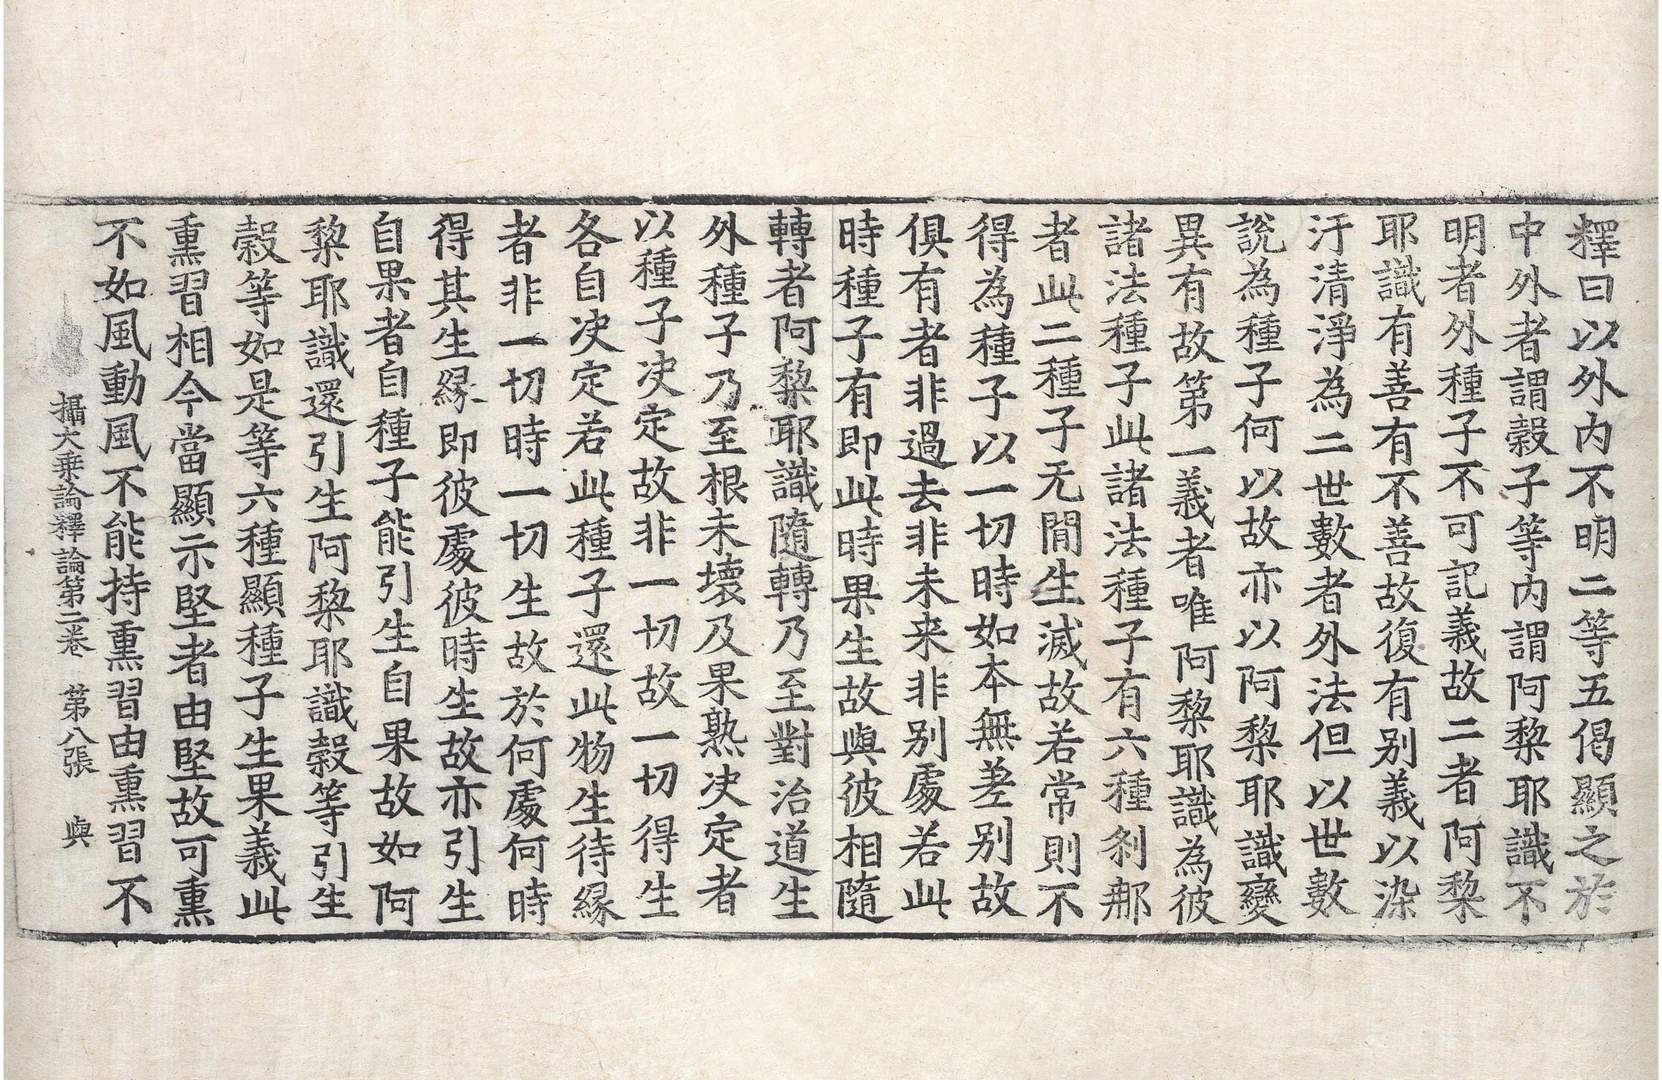 釋曰以外內不明二等五偈顯之於
中外者謂穀子等內謂阿黎耶識不
明者外種子不可記義故二者阿黎
耶識有善有不善故復有別義以染
汙清淨為二世數者外法但以世數
說為種子何以故亦以阿黎耶識變
異有故第一義者唯阿黎耶識為彼
諸法種子此諸法種子有六種剎那
者此二種子无間生滅故若常則不
得為種子以一切時如本無差別故
俱有者非過去非未来非別處若此
時種子有即此時果生故與彼相隨
轉者阿黎耶識隨轉乃至對治道生
外種子乃至根未壞及果熟决定者
以種子决定故非一切故一切得生
各自决定若此種子還此物生待緣
者非一切時一切生故於何處何時
得其生緣即彼處彼時生故亦引生
自果者自種子能引生自果故如阿
黎耶識還引生阿黎耶識穀等引生
穀等如是等六種顯種子生果義此
熏習相今當顯示堅者由堅故可熏
不如風動風不能持熏習由熏習不
攝大乘論釋論第二卷 第八張 與